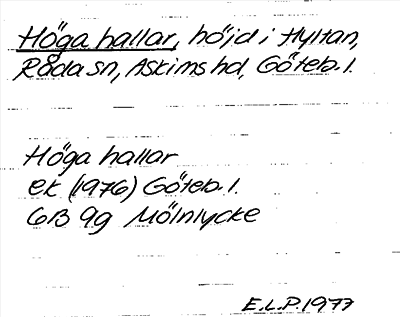 Höga hallar, höjd i Hyltan,
Råda sn, Askims hd, Göteb. l.
Höga hallar
ek (1976) Göteb. l.
6B 9g Mölnlycke
E.L.P. 1977